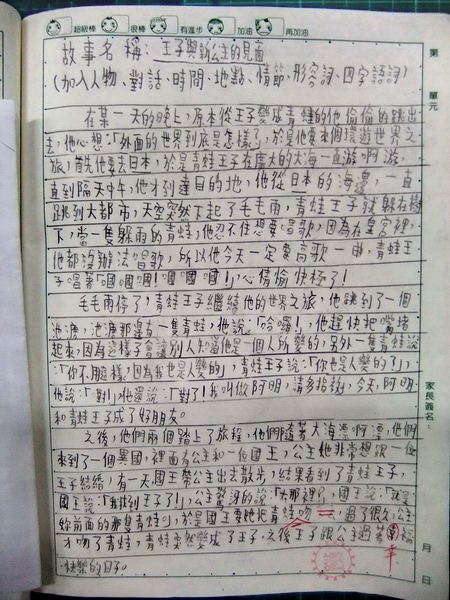 超級棒 很棒 有進步 加油 再加油
第 單元
故事名稱：王子與新公主的見面
(加入人物、對話、時間、地點、情節、形容詞、四字語詞)
在某一天的晚上，原本從王子變成青蛙的他偷偷的跳出
去，他心想：「外面的世界到底是怎樣了，於是他要來個環遊世界之
旅，首先他要去日本，於是青蛙王子在廣大的大海一直游啊游，
直到隔天中午，他才到達目的地，他從日本的海邊，一直
跳到大都市，天空突然下起了毛毛雨，青蛙王子就躲在樹
下，當一隻躲雨的青蛙，他忍不住想要唱歌，因為在皇宮裡，
他都沒辦法唱歌，所以他今天一定要高歌一曲，青蛙王
子唱著「嘓嘓嘓！嘓嘓嘓！」，心情愉快極了！
毛毛雨停了，青蛙王子繼續他的世界之旅，他跳到了一個
池塘，池塘那邊有一隻青蛙，他說：「哈囉！」，他趕快把嘴捂
起來，因為這樣子會讓別人知道他是一個人所變的，另外一隻青蛙說
：「你不用這樣，因為我也是人變的」，青蛙王子說：「你也是人變的！」，
他說：「對！」，他還說：「對了！我叫做阿明，請多指教」，今天，阿明
和青蛙王子成了好朋友。
之後，他們兩個踏上了旅程，他們隨著大海漂啊漂，他們
來到了一個異國，裡面有公主和一位國王，公主他非常想跟一位
王子結婚，有一天國王帶公主出去散步，結果看到了青蛙王子，
國王說：「我找到王子了！」，公主驚訝的說：「在那裡？」，國王說：「就是
妳前面的那隻青蛙」，於是國王要她把青蛙吻，過了很久，公主
才吻了青蛙，青蛙突然變成了王子，之後王子跟公主過著幸福
快樂的日子。
家長簽名：
月 日